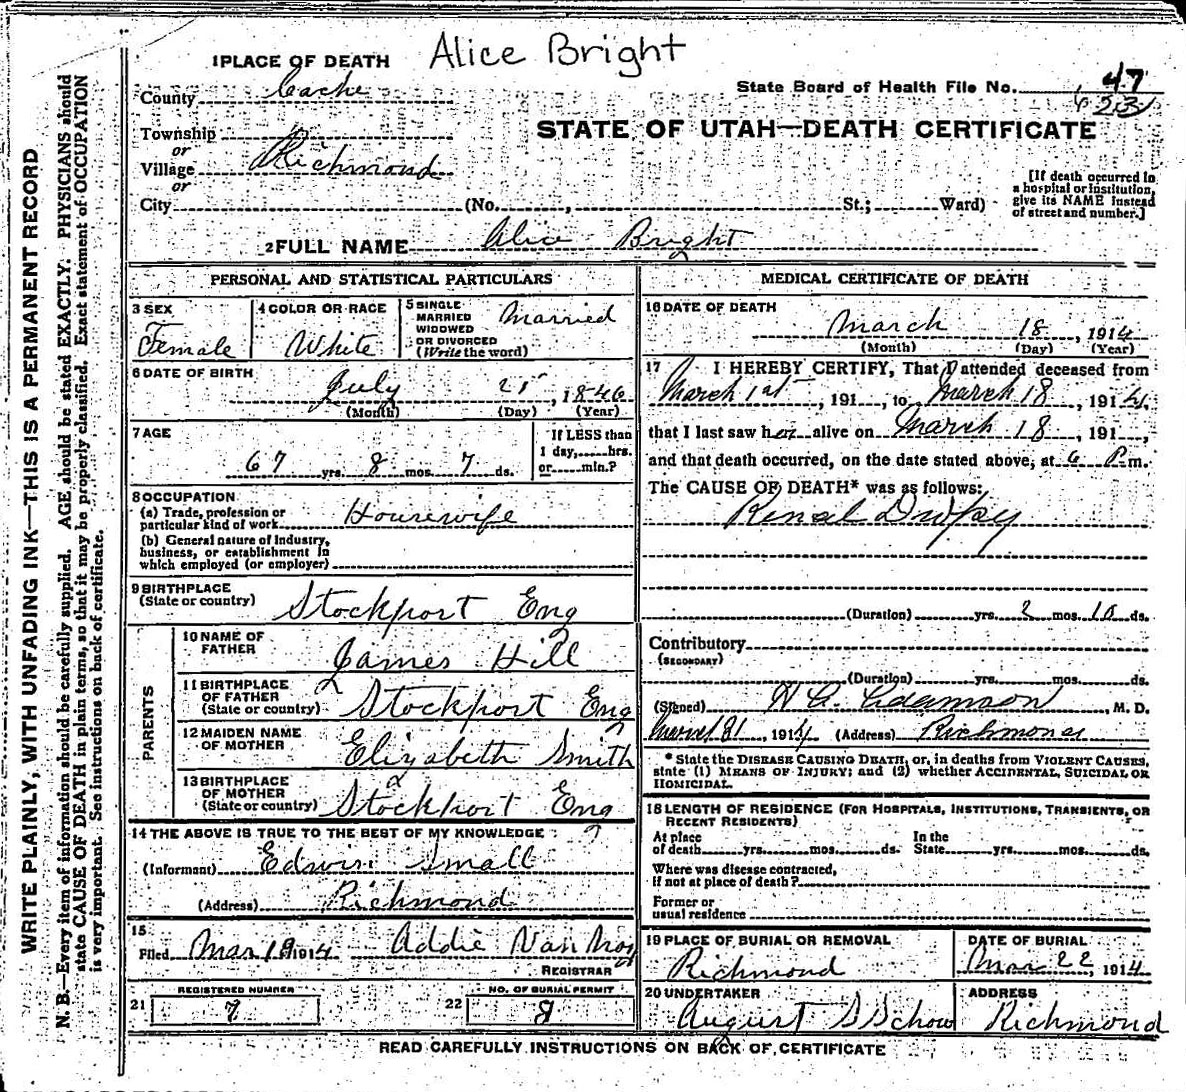 Alice Bright
1 PLACE OF DEATH
County Cache
State Board of Health File No. 47
Township
or
Village Richmond
or
City (No. , St.; Ward)
STATE OF UTAH—DEATH CERTIFICATE
[If death occurred in
a hospital or institution,
give its NAME instead
of street and number.]
2 FULL NAME Alice Bright
PERSONAL AND STATISTICAL PARTICULARS
3 SEX
Female
4 COLOR OR RACE
White
5 SINGLE
MARRIED
WIDOWED
OR DIVORCED
(Write the word)
Married
6 DATE OF BIRTH
July 21st, 1846
(Month) (Day) (Year)
7 AGE
67 yrs. 8 mos. 7 ds.
If LESS than
1 day, hrs.
or min.?
8 OCCUPATION
(a) Trade, profession or
particular kind of work Housewife
(b) General nature of industry,
business, or establishment in
which employed (or employer)
9 BIRTHPLACE
(State or country) Stockport Eng
PARENTS
10 NAME OF
FATHER James Hill
11 BIRTHPLACE
OF FATHER
(State or country) Stockport Eng
12 MAIDEN NAME
OF MOTHER Elizabeth Smith
13 BIRTHPLACE
OF MOTHER
(State or country) Stockport Eng
14 THE ABOVE IS TRUE TO THE BEST OF MY KNOWLEDGE
(Informant) Edwin Small
(Address) Richmond
15
Filed Mar 19 1914 Addie Van
REGISTRAR
REGISTERED NUMBER
21 7
NO. OF BURIAL PERMIT
22 8
MEDICAL CERTIFICATE OF DEATH
16 DATE OF DEATH
March 18, 1914
(Month) (Day) (Year)
17 I HEREBY CERTIFY, That I attended deceased from
March 1st, 191 , to March 18, 1914,
that I last saw her alive on March 18, 191 ,
and that death occurred, on the date stated above, at 6 P.m.
The CAUSE OF DEATH* was as follows:
Renal Dropsy
(Duration) yrs. 2 mos. 10 ds.
Contributory
(SECONDARY)
(Duration) yrs. mos. ds.
(Signed) Adamson, M. D.
, 1914 (Address) Richmond
* State the DISEASE CAUSING DEATH, or, in deaths from VIOLENT CAUSES,
state (1) MEANS OF INJURY; and (2) whether ACCIDENTAL, SUICIDAL OR
HOMICIDAL.
18 LENGTH OF RESIDENCE (FOR HOSPITALS, INSTITUTIONS, TRANSIENTS, OR
RECENT RESIDENTS)
At place
of death yrs. mos. ds.
In the
State yrs. mos. ds.
Where was disease contracted,
if not at place of death?
Former or
usual residence
19 PLACE OF BURIAL OR REMOVAL
Richmond
DATE OF BURIAL
Mar 22, 1914
20 UNDERTAKER
August S Schow
ADDRESS
Richmond
READ CAREFULLY INSTRUCTIONS ON BACK OF CERTIFICATE
WRITE PLAINLY, WITH UNFADING INK—THIS IS A PERMANENT RECORD
N. B.—Every item of information should be carefully supplied. AGE should be stated EXACTLY. PHYSICIANS should
state CAUSE OF DEATH in plain terms, so that it may be properly classified. Exact statement of OCCUPATION
is very important. See instructions on back of certificate.